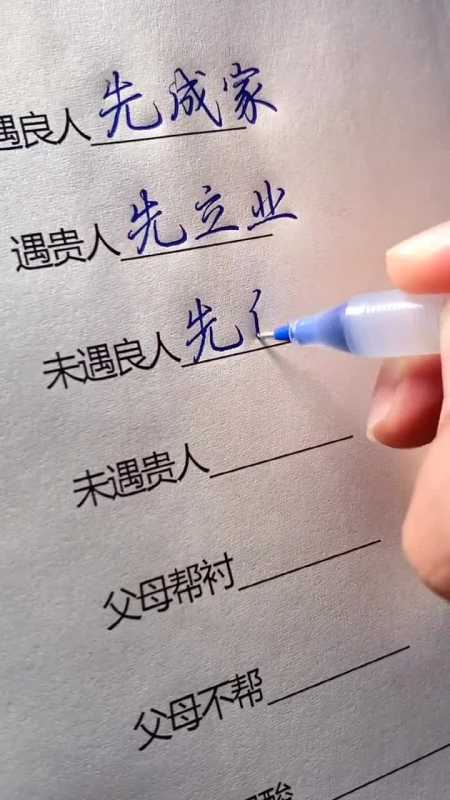 遇良人先成家
遇贵人先立业
未遇良人先
未遇贵人
父母帮衬
父母不帮
酸